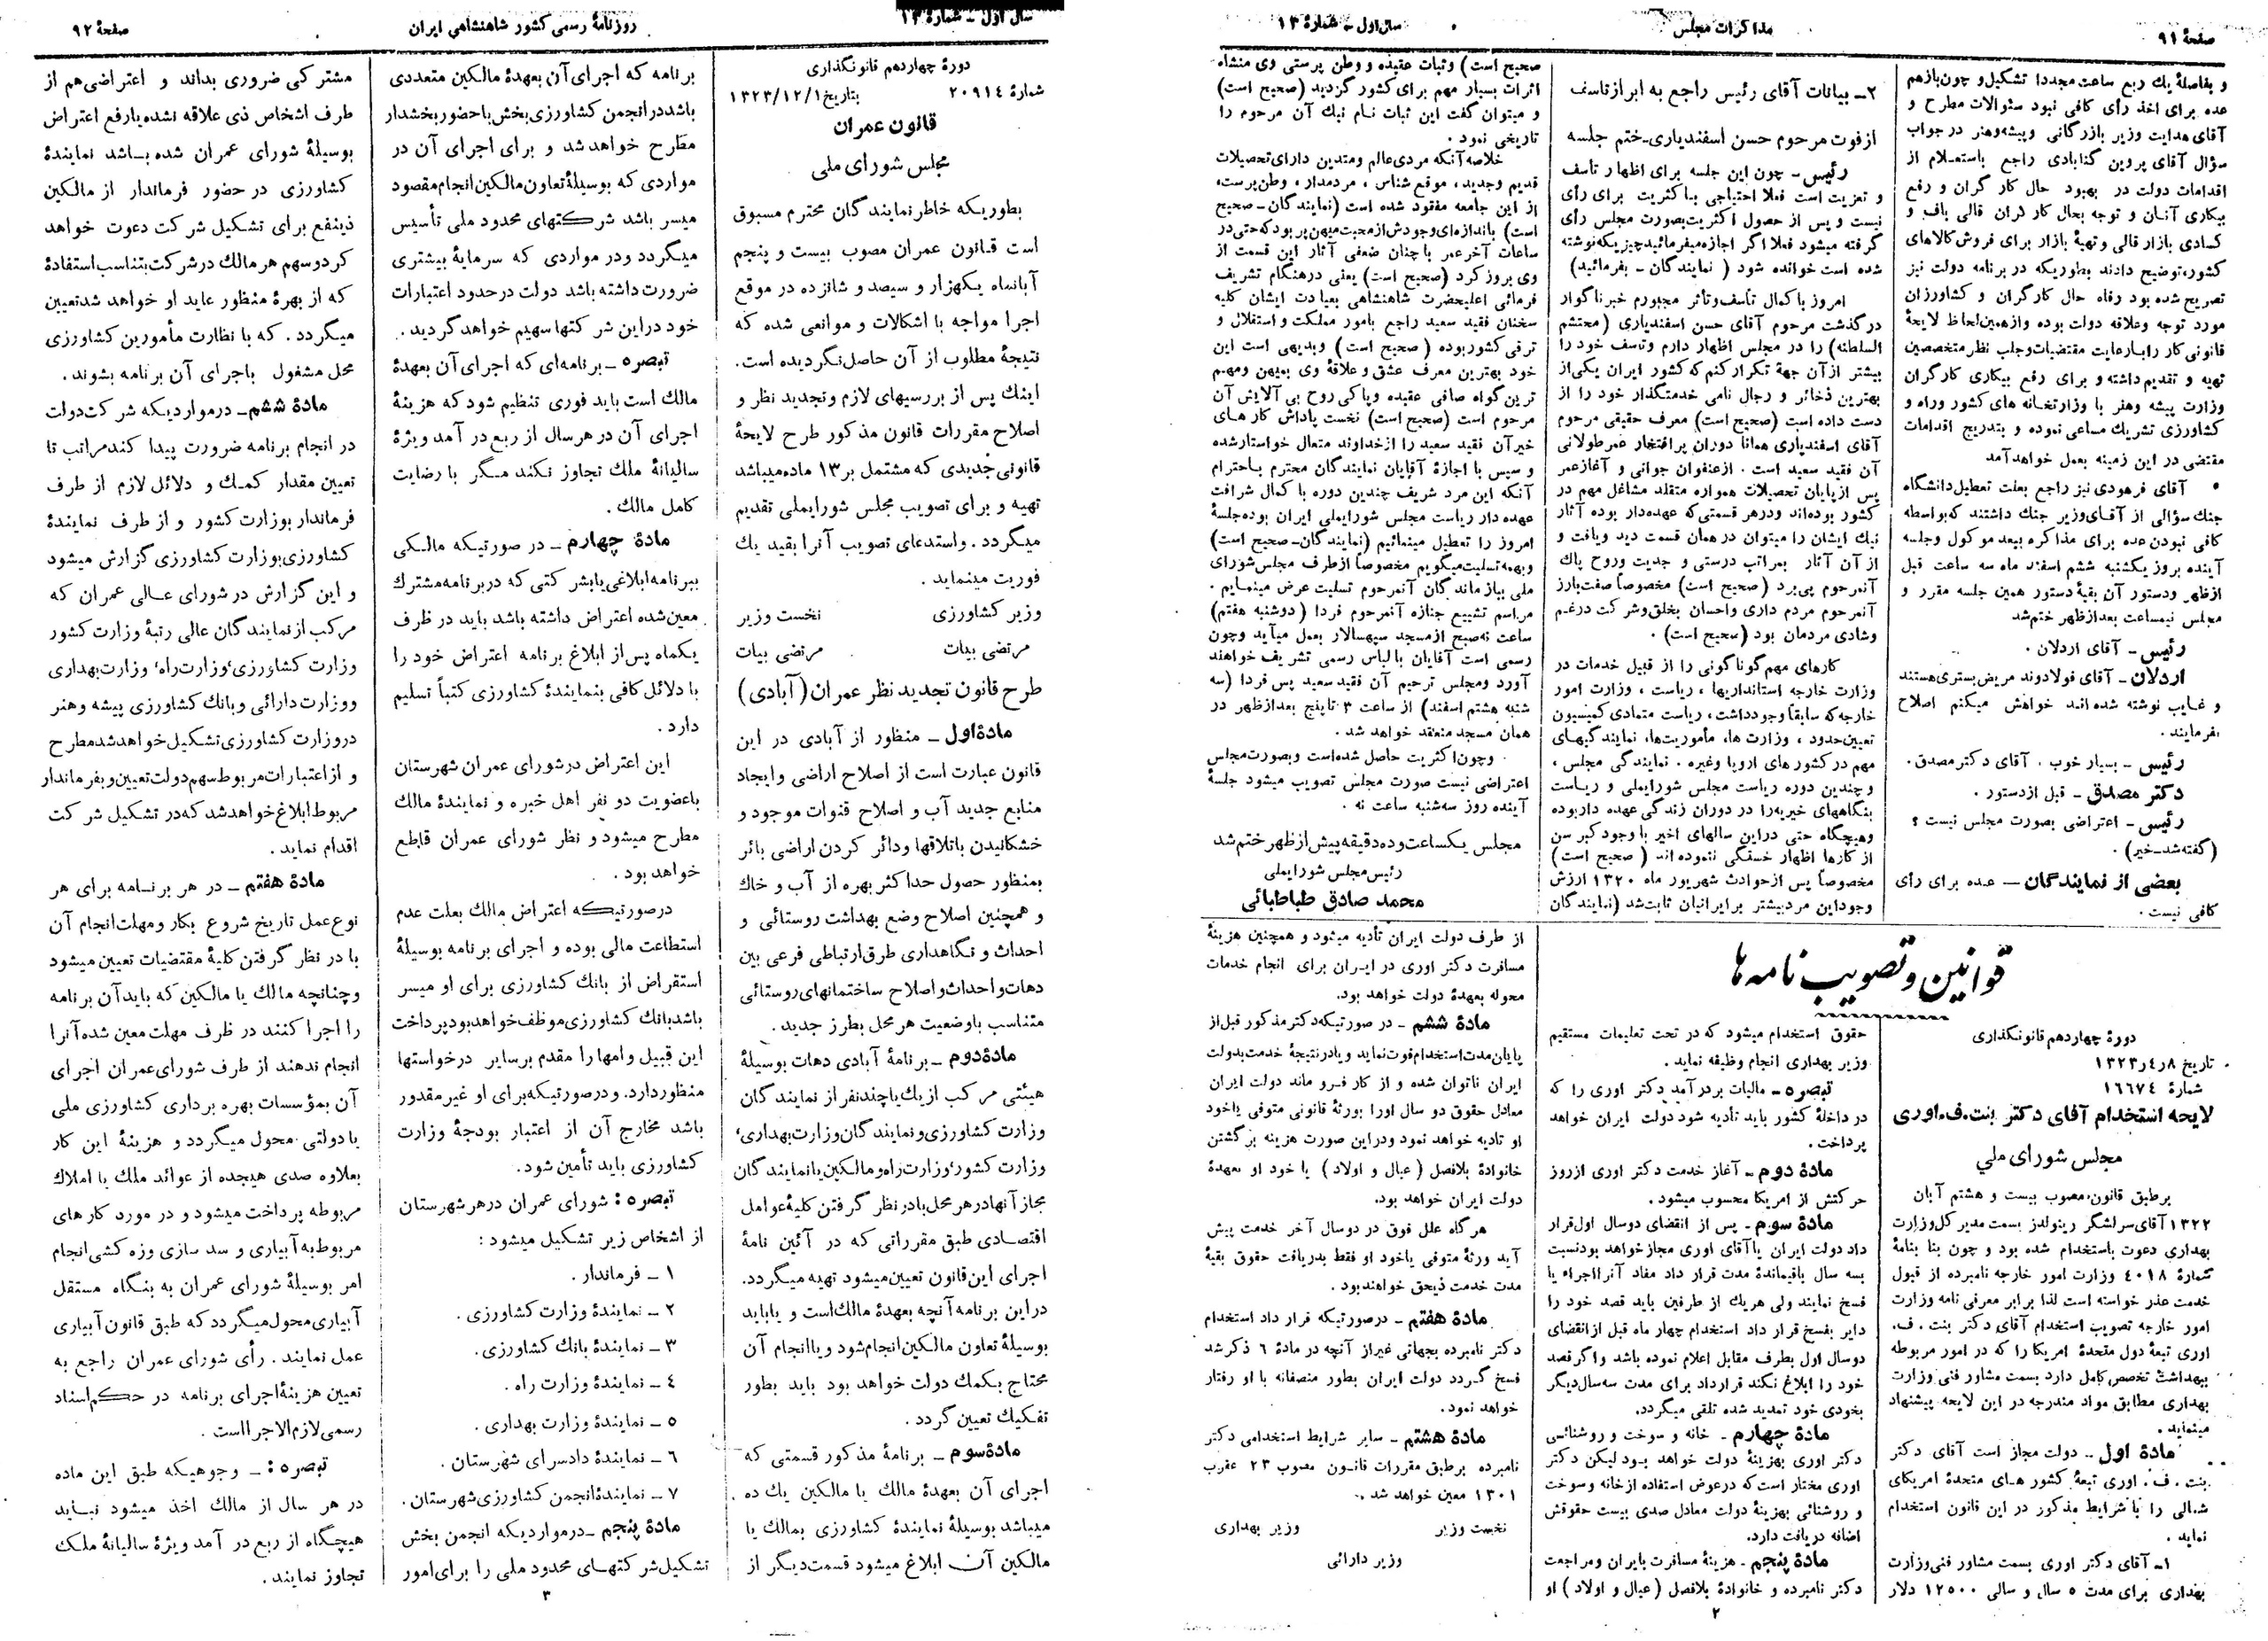 صفحهٔ ۹۱
مذاکرات مجلس
سال اول ـ شمارهٔ ۱۳
و بفاصلهٔ یك ربع ساعت مجددا تشکیل و چون بازهم
عده برای اخذ رأی کافی نبود سئوالات مطرح و
آقای هدایت وزیر بازرگانی و پیشه و هنر در جواب
سؤال آقای پروین گنابادی راجع باستعلام از
اقدامات دولت در بهبود حال کار گران و رفع
بیکاری آنان و توجه بحال کار گران قالی باف و
کسادی بازار قالی و تهیهٔ بازار برای فروش کالاهای
کشور، توضیح دادند بطوریکه در برنامه دولت نیز
تصریح شده بود رفاه حال کارگران و کشاورزان
مورد توجه وعلاقه دولت بوده وازهمین لحاظ لایحهٔ
قانونی کار را بارعایت مقتضیات وجلب نظر متخصصین
تهیه و تقدیم داشته و برای رفع بیکاری کارگران
وزارت پیشه وهنر با وزارتخانه های کشور وراه و
کشاورزی تشریك مساعی نموده و بتدریج اقدامات
مقتضی در این زمینه بعمل خواهد آمد
آقای فرهودی نیز راجع بعلت تعطیل دانشگاه
جنك سؤالی از آقای وزیر جنك داشتند که بواسطه
کافی نبودن عده برای مذاکره ببعد موکول وجلسه
آینده بروز یکشنبه ششم اسفند ماه سه ساعت قبل
ازظهر ودستور آن بقیهٔ دستور همین جلسه مقرر و
مجلس نیمساعت بعد از ظهر ختم شد
رئیس ـ آقای اردلان .
اردلان ـ آقای فولادوند مریض بستری هستند
و غایب نوشته شده اند خواهش میکنم اصلاح
بفرمایند .
رئیس ـ بسیار خوب . آقای دکتر مصدق .
دکتر مصدق ـ قبل ازدستور .
رئیس ـ اعتراضی بصورت مجلس نیست ؟
(گفته شد ـ خیر) .
بعضی از نمایندگان ـ عده برای رأی
کافی نیست .
۲ـ بیانات آقای رئیس راجع به ابراز تاسف
از فوت مرحوم حسن اسفندیاری ـ ختم جلسه
رئیس ـ چون این جلسه برای اظهار تأسف
و تعزیت است فعلا احتیاجی با کثریت برای رأی
نیست و پس از حصول اکثریت بصورت مجلس رأی
گرفته میشود فعلا اگر اجازه میفرمائید چیزیکه نوشته
شده است خوانده شود ( نمایندگان ـ بفرمائید)
امروز با کمال تأسف و تأثر مجبورم خبرناگوار
در گذشت مرحوم آقای حسن اسفندیاری (محتشم
السلطنه) را در مجلس اظهار دارم وتاسف خود را
بیشتر از آن جهة تکرار کنم که کشور ایران یکی از
بهترین ذخائر و رجال نامی خدمتگذار خود را از
دست داده است (صحیح است) معرف حقیقی مرحوم
آقای اسفندیاری همانا دوران پرافتخار عمر طولانی
آن فقید سعید است . از عنفوان جوانی و آغاز عمر
پس از پایان تحصیلات همواره متقلد مشاغل مهم در
کشور بوده اند ودر هر قسمتی که عهده دار بوده آثار
نیك ایشان را میتوان در همان قسمت دید ویافت و
از آن آثار بمراتب درستی و جدیت وروح پاك
آنمرحوم پی برد (صحیح است) مخصوصاً صفت بارز
آنمرحوم مردم داری واحسان بخلق وشر کت در غم
وشادی مردمان بود (صحیح است) .
کارهای مهم گونا گونی را از قبیل خدمات در
وزارت خارجه استانداریها ، ریاست ، وزارت امور
خارجه که سابقاً وجود داشت ، ریاست متمادی کمیسیون
تعیین حدود ، وزارت ها، مأموریت ها، نمایندگیهای
مهم در کشورهای اروپا وغیره . نمایندگی مجلس ،
وچندین دوره ریاست مجلس شورایملی و ریاست
بنگاههای خیریه را در دوران زندگی عهده دار بوده
وهیچگاه حتی دراین سالهای اخیر با وجود کبر سن
از کارها اظهار خستگی ننموده اند ( صحیح است )
مخصوصاً پس از حوادث شهریور ماه ۱۳۲۰ ارزش
وجود این مرد بیشتر برایرانیان ثابت شد (نمایندگان
صحیح است) و ثبات عقیده و وطن پرستی وی منشاء
اثرات بسیار مهم برای کشور گردید (صحیح است)
و میتوان گفت این ثبات نام نیك آن مرحوم را
تاریخی نمود .
خلاصه آنکه مردی عالم ومتدین دارای تحصیلات
قدیم وجدید ، موقع شناس ، مردمدار ، وطن پرست ،
از این جامعه مفقود شده است (نمایندگان ـ صحیح
است) باندازه ای وجودش از محبت میهن پر بود که حتی در
ساعات آخر عمر باچنان ضعفی آثار این قسمت از
وی بروز کرد (صحیح است) یعنی درهنگام تشریف
فرمائی اعلیحضرت شاهنشاهی بعیادت ایشان کلیه
سخنان فقید سعید راجع بامور مملکت و استقلال و
ترقی کشور بوده ( صحیح است ) وبدیهی است این
خود بهترین معرف عشق و علاقهٔ وی بمیهن ومهم
ترین گواه صافی عقیده وپا کی روح بی آلایش آن
مرحوم است (صحیح است) نخست پاداش کارهای
خیر آن فقید سعید را از خداوند متعال خواستار شده
و سپس با اجازهٔ آقایان نمایندگان محترم باحترام
آنکه این مرد شریف چندین دوره با کمال شرافت
عهده دار ریاست مجلس شورایملی ایران بوده جلسهٔ
امروز را تعطیل مینمائیم (نمایندگان ـ صحیح است)
وبهمه تسلیت میگویم مخصوصاً از طرف مجلس شورای
ملی ببازماندگان آنمرحوم تسلیت عرض مینمایم .
مراسم تشییع جنازه آنمرحوم فردا (دوشنبه هفتم)
ساعت نه صبح از مسجد سپهسالار بعمل میآید وچون
رسمی است آقایان با لباس رسمی تشریف خواهند
آورد ومجلس ترحیم آن فقید سعید پس فردا (سه
شنبه هشتم اسفند) از ساعت ۳ تا پنج بعداز ظهر در
همان مسجد منعقد خواهد شد .
وچون اکثریت حاصل شده است و بصورت مجلس
اعتراضی نیست صورت مجلس تصویب میشود جلسهٔ
آینده روز سه شنبه ساعت نه .
مجلس یکساعت وده دقیقه پیش از ظهر ختم شد
رئیس مجلس شورایملی
محمد صادق طباطبائی
قوانین و تصویب نامه ها
دورهٔ چهاردهم قانونگذاری
تاریخ ۸ر٤ر۱۳۲۳
شمارهٔ ۱۶۶۷٤
لایحه استخدام آقای دکتر بنت.ف.اوری
مجلس شورای ملی
برطبق قانون مصوب بیست و هشتم آبان
۱۳۲۲ آقای سرلشگر رینولدز بسمت مدیر کل وزارت
بهداری دعوت باستخدام شده بود و چون بنا بنامهٔ
شمارهٔ ٤۰۱۸ وزارت امور خارجه نامبرده از قبول
خدمت عذر خواسته است لذا برابر معرفی نامه وزارت
امور خارجه تصویب استخدام آقای دکتر بنت . ف.
اوری تبعهٔ دول متحدهٔ امریکا را که در امور مربوطه
ببهداشت تخصص کامل دارد بسمت مشاور فنی وزارت
بهداری مطابق مواد مندرجه در این لایحه پیشنهاد
مینماید .
مادهٔ اول ـ دولت مجاز است آقای دکتر
بنت . ف . اوری تبعهٔ کشور های متحدهٔ امریکای
شمالی را با شرایط مذکور در این قانون استخدام
نماید .
۱ـ آقای دکتر اوری بسمت مشاور فنی وزارت
بهداری برای مدت ۵ سال و سالی ۱۲۵۰۰ دلار
حقوق استخدام میشود که در تحت تعلیمات مستقیم
وزیر بهداری انجام وظیفه نماید .
تبصره ـ مالیات بر درآمد دکتر اوری را که
در داخلهٔ کشور باید تأدیه شود دولت ایران خواهد
پرداخت .
مادهٔ دوم ـ آغاز خدمت دکتر اوری از روز
حرکتش از امریکا محسوب میشود .
مادهٔ سوم ـ پس از انقضای دوسال اول قرار
داد دولت ایران یا آقای اوری مجاز خواهد بود نسبت
بسه سال باقیماندهٔ مدت قرار داد مفاد آنرا اجراء یا
فسخ نمایند ولی هریك از طرفین باید قصد خود را
دایر بفسخ قرار داد استخدام چهار ماه قبل از انقضای
دوسال اول بطرف مقابل اعلام نموده باشد و اگر قصد
خود را ابلاغ نکند قرارداد برای مدت سه سال دیگر
بخودی خود تمدید شده تلقی میگردد.
مادهٔ چهارم ـ خانه و سوخت و روشنائی
دکتر اوری بهزینهٔ دولت خواهد بود لیکن دکتر
اوری مختار است که درعوض استفاده ازخانه و سوخت
و روشنائی بهزینهٔ دولت معادل صدی بیست حقوقش
اضافه دریافت دارد.
مادهٔ پنجم ـ هزینهٔ مسافرت بایران و مراجعت
دکتر نامبرده و خانوادهٔ بلافصل (عیال و اولاد) او
از طرف دولت ایران تأدیه میشود و همچنین هزینهٔ
مسافرت دکتر اوری در ایران برای انجام خدمات
محوله بعهدهٔ دولت خواهد بود.
مادهٔ ششم ـ در صورتیکه دکتر مذکور قبل از
پایان مدت استخدام فوت نماید ویا در نتیجهٔ خدمت بدولت
ایران ناتوان شده و از کار فرو ماند دولت ایران
معادل حقوق دو سال اورا بورثهٔ قانونی متوفی یاخود
او تادیه خواهد نمود و دراین صورت هزینه برگشتن
خانوادهٔ بلافصل (عیال و اولاد ) یا خود او بعهدهٔ
دولت ایران خواهد بود.
هر گاه علل فوق در دوسال آخر خدمت پیش
آید ورثهٔ متوفی یاخود او فقط بدریافت حقوق بقیهٔ
مدت خدمت ذیحق خواهند بود.
مادهٔ هفتم ـ درصورتیکه قرار داد استخدام
دکتر نامبرده بجهاتی غیر از آنچه در مادهٔ ۶ ذکر شد
فسخ گردد دولت ایران بطور منصفانه با او رفتار
خواهد نمود.
مادهٔ هشتم ـ سایر شرایط استخدامی دکتر
نامبرده برطبق مقررات قانون مصوب ۲۳ عقرب
۱۳۰۱ معین خواهد شد .
نخست وزیر
وزیر بهداری
وزیر دارائی
۲
سال اول ـ شمارهٔ ۱۳
روزنامهٔ رسمی کشور شاهنشاهی ایران
صفحهٔ ۹۲
دورهٔ چهاردهم قانونگذاری
شمارهٔ ۲۰۹۱٤
بتاریخ ۱۳۲۳/۱۲/۱
قانون عمران
مجلس شورای ملی
بطوریکه خاطر نمایندگان محترم مسبوق
است قانون عمران مصوب بیست و پنجم
آبانماه یکهزار و سیصد و شانزده در موقع
اجرا مواجه با اشکالات و موانعی شده که
نتیجهٔ مطلوب از آن حاصل نگردیده است.
اینك پس از بررسیهای لازم و تجدید نظر و
اصلاح مقررات قانون مذکور طرح لایحهٔ
قانونی جدیدی که مشتمل بر ۱۳ ماده میباشد
تهیه و برای تصویب مجلس شورایملی تقدیم
میگردد . واستدعای تصویب آنرا بقید یك
فوریت مینماید .
وزیر کشاورزی
نخست وزیر
مرتضی بیات
مرتضی بیات
طرح قانون تجدید نظر عمران (آبادی)
مادهٔ اول ـ منظور از آبادی در این
قانون عبارت است از اصلاح اراضی و ایجاد
منابع جدید آب و اصلاح قنوات موجود و
خشکانیدن باتلاقها ودائر کردن اراضی بائر
بمنظور حصول حداکثر بهره از آب و خاك
و همچنین اصلاح وضع بهداشت روستائی و
احداث و نگاهداری طرق ارتباطی فرعی بین
دهات واحداث واصلاح ساختمانهای روستائی
متناسب باوضعیت هر محل بطرز جدید .
مادهٔ دوم ـ برنامهٔ آبادی دهات بوسیلهٔ
هیئتی مرکب از یك یا چند نفر از نمایندگان
وزارت کشاورزی و نمایندگان وزارت بهداری،
وزارت کشور، وزارت راه و مالکین یا نمایندگان
مجاز آنها در هر محل بادر نظر گرفتن کلیهٔ عوامل
اقتصادی طبق مقرراتی که در آئین نامهٔ
اجرای این قانون تعیین میشود تهیه میگردد.
دراین برنامه آنچه بعهدهٔ مالك است و یا باید
بوسیلهٔ تعاون مالکین انجام شود ویا انجام آن
محتاج بکمك دولت خواهد بود باید بطور
تفکیك تعیین گردد .
مادهٔ سوم ـ برنامهٔ مذکور قسمتی که
اجرای آن بعهدهٔ مالك یا مالکین یك ده
میباشد بوسیلهٔ نمایندهٔ کشاورزی بمالك یا
مالکین آن ابلاغ میشود قسمت دیگر از
برنامه که اجرای آن بعهدهٔ مالکین متعددی
باشد در انجمن کشاورزی بخش با حضور بخشدار
مطرح خواهد شد و برای اجرای آن در
مواردی که بوسیلهٔ تعاون مالکین انجام مقصود
میسر باشد شرکتهای محدود ملی تأسیس
میگردد ودر مواردی که سرمایهٔ بیشتری
ضرورت داشته باشد دولت در حدود اعتبارات
خود در این شرکتها سهیم خواهد گردید .
تبصره ـ برنامه ای که اجرای آن بعهدهٔ
مالك است باید فوری تنظیم شود که هزینهٔ
اجرای آن در هر سال از ربع در آمد ویژهٔ
سالیانهٔ ملك تجاوز نکند مگر با رضایت
کامل مالك .
مادهٔ چهارم ـ در صورتیکه مالکی
ببرنامه ابلاغی یا بشرکتی که در برنامه مشترك
معین شده اعتراض داشته باشد باید در ظرف
یکماه پس از ابلاغ برنامه اعتراض خود را
با دلائل کافی بنمایندهٔ کشاورزی کتباً تسلیم
دارد .
این اعتراض در شورای عمران شهرستان
باعضویت دو نفر اهل خبره و نمایندهٔ مالك
مطرح میشود و نظر شورای عمران قاطع
خواهد بود .
در صورتیکه اعتراض مالك بعلت عدم
استطاعت مالی بوده و اجرای برنامه بوسیلهٔ
استقراض از بانك کشاورزی برای او میسر
باشد بانك کشاورزی موظف خواهد بود پرداخت
این قبیل وامها را مقدم بر سایر درخواستها
منظور دارد. و در صورتیکه برای او غیر مقدور
باشد مخارج آن از اعتبار بودجهٔ وزارت
کشاورزی باید تأمین شود.
تبصره : شورای عمران در هر شهرستان
از اشخاص زیر تشکیل میشود :
۱ ـ فرماندار .
۲ ـ نمایندهٔ وزارت کشاورزی .
۳ ـ نمایندهٔ بانك کشاورزی.
٤ ـ نمایندهٔ وزارت راه.
۵ ـ نمایندهٔ وزارت بهداری .
۶ ـ نمایندهٔ دادسرای شهرستان .
۷ ـ نمایندهٔ انجمن کشاورزی شهرستان.
مادهٔ پنجم ـ در مواردیکه انجمن بخش
تشکیل شرکتهای محدود ملی را برای امور
مشترکی ضروری بداند و اعتراضی هم از
طرف اشخاص ذی علاقه نشده یا رفع اعتراض
بوسیلهٔ شورای عمران شده باشد نمایندهٔ
کشاورزی در حضور فرماندار از مالکین
ذینفع برای تشکیل شرکت دعوت خواهد
کرد و سهم هر مالك در شرکت بتناسب استفادهٔ
که از بهرهٔ منظور عاید او خواهد شد تعیین
میگردد . که با نظارت مأمورین کشاورزی
محل مشغول باجرای آن برنامه بشوند.
مادهٔ ششم ـ در مواردیکه شرکت دولت
در انجام برنامه ضرورت پیدا کند مراتب تا
تعیین مقدار کمك و دلائل لازم از طرف
فرماندار بوزارت کشور و از طرف نمایندهٔ
کشاورزی بوزارت کشاورزی گزارش میشود
و این گزارش در شورای عالی عمران که
مرکب از نمایندگان عالی رتبهٔ وزارت کشور
وزارت کشاورزی، وزارت راه، وزارت بهداری
ووزارت دارائی و بانك کشاورزی پیشه و هنر
در وزارت کشاورزی تشکیل خواهد شد مطرح
و از اعتبارات مربوط سهم دولت تعیین و بفرماندار
مربوط ابلاغ خواهد شد که در تشکیل شرکت
اقدام نماید .
مادهٔ هفتم ـ در هر برنامه برای هر
نوع عمل تاریخ شروع بکار ومهلت انجام آن
با در نظر گرفتن کلیهٔ مقتضیات تعیین میشود
وچنانچه مالك یا مالکین که باید آن برنامه
را اجرا کنند در ظرف مهلت معین شده آنرا
انجام ندهند از طرف شورای عمران اجرای
آن بمؤسسات بهره برداری کشاورزی ملی
یا دولتی محول میگردد و هزینهٔ این کار
بعلاوه صدی هیجده از عوائد ملك یا املاك
مربوطه پرداخت میشود و در مورد کارهای
مربوط به آبیاری و سد سازی وزه کشی انجام
امر بوسیلهٔ شورای عمران به بنگاه مستقل
آبیاری محول میگردد که طبق قانون آبیاری
عمل نمایند . رأی شورای عمران راجع به
تعیین هزینهٔ اجرای برنامه در حکم اسناد
رسمی لازم الاجرا است .
تبصره : ـ وجوهیکه طبق این ماده
در هر سال از مالك اخذ میشود نباید
هیچگاه از ربع در آمد ویژهٔ سالیانهٔ ملك
تجاوز نمایند .
۳